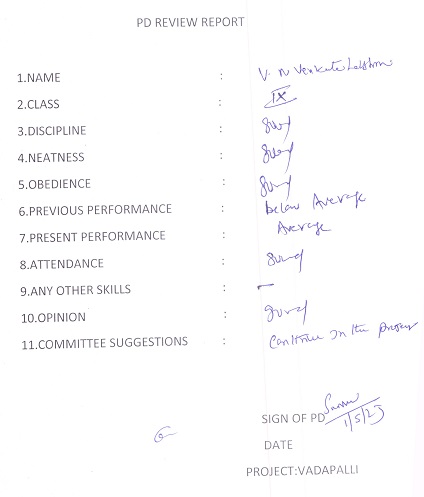 PD REVIEW REPORT
1.NAME : V. N Venkata Lakshmi
2.CLASS : IX
3.DISCIPLINE : Good
4.NEATNESS : Good
5.OBEDIENCE : Good
6.PREVIOUS PERFORMANCE : below Average
7.PRESENT PERFORMANCE : Average
8.ATTENDANCE : Good
9.ANY OTHER SKILLS : –
10.OPINION : Good
11.COMMITTEE SUGGESTIONS : Continue in the project
SIGN OF PD
1/5/23
DATE
PROJECT:VADAPALLI